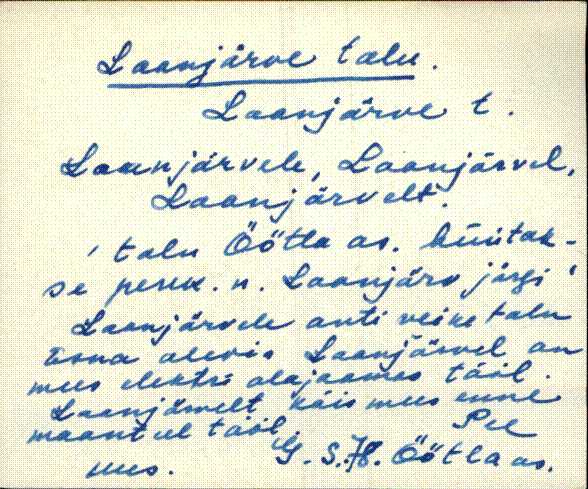 Laanjärve talu.
Laanjärve t.
Laanjärvele, Laanjärvel,
Laanjärvelt.
' talu Öötla as. hüütak-
se perek. n. Laanjärv järgi '
Laanjärvele anti veike talu
Esna alevis Laanjärvel on
mees elektri alajaamas tööl.
Laanjärvelt käis mees enne
maanteel tööl. Pee
G. S. Öötla as.
mees.